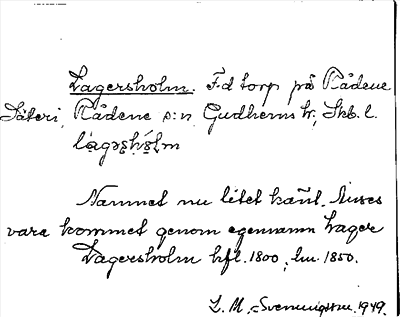 Lagersholm. F.d torp på Rådene
Säteri, Rådene s:n, Gudhems hr, Skb. l.
Namnet nu litet känt. Anses
vara kommet genom egennamn Lager
Lagersholm hfl. 1800,
L. M. Svenningsson. 1949.